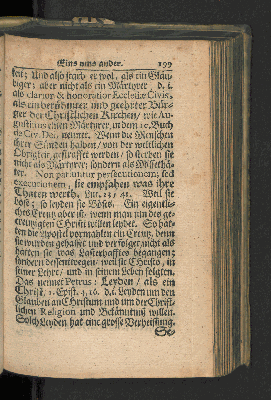 Eins uns ander. 199
keit; Und also starb er wol, als ein Gläu-
biger; aber nicht als ein Märtyrer, d. i.
als clarior & honoratior Ecclesiæ Civis,
als ein berühmter und geehrter Bür-
ger der Christlichen Kirchen/ wie Au-
gustinus einen Märtyrer, in dem 10. Buch
de Civ. Dei, nennet. Wenn die Menschen
ihrer Sünden halben/ von der weltlichen
Obrigkeit gestrafft werden/ so sterben sie
nicht als Märtyrer; sondern als Missethä-
ter. Non patiuntur persecutionem; sed
executionem, sie empfahen was ihre
Thaten werth. Luc. 23/ 41. Weil sie
böse; so leyden sie Böses. Ein eigentli-
ches Creutz aber ist/ wenn man um des ge-
creutzigten Christi willen leydet. So hat-
ten die Apostel vormahlen ein Creutz, denn
sie wurden gehasset und verfolget, nicht als
hätten sie was Lasterhafftes begangen;
sondern dessentwegen/ weil sie Christo, in
seiner Lehre/ und in seinem Leben folgten.
Das nennet Petrus: Leyden/ als ein
Christ, 1. Epist. 4, 16. d. i. Leyden um den
Glauben an Christum und um der Christ-
lichen Religion und Bekänntnuß willen.
Solch Leyden hat eine grosse Verheissung.
Se-